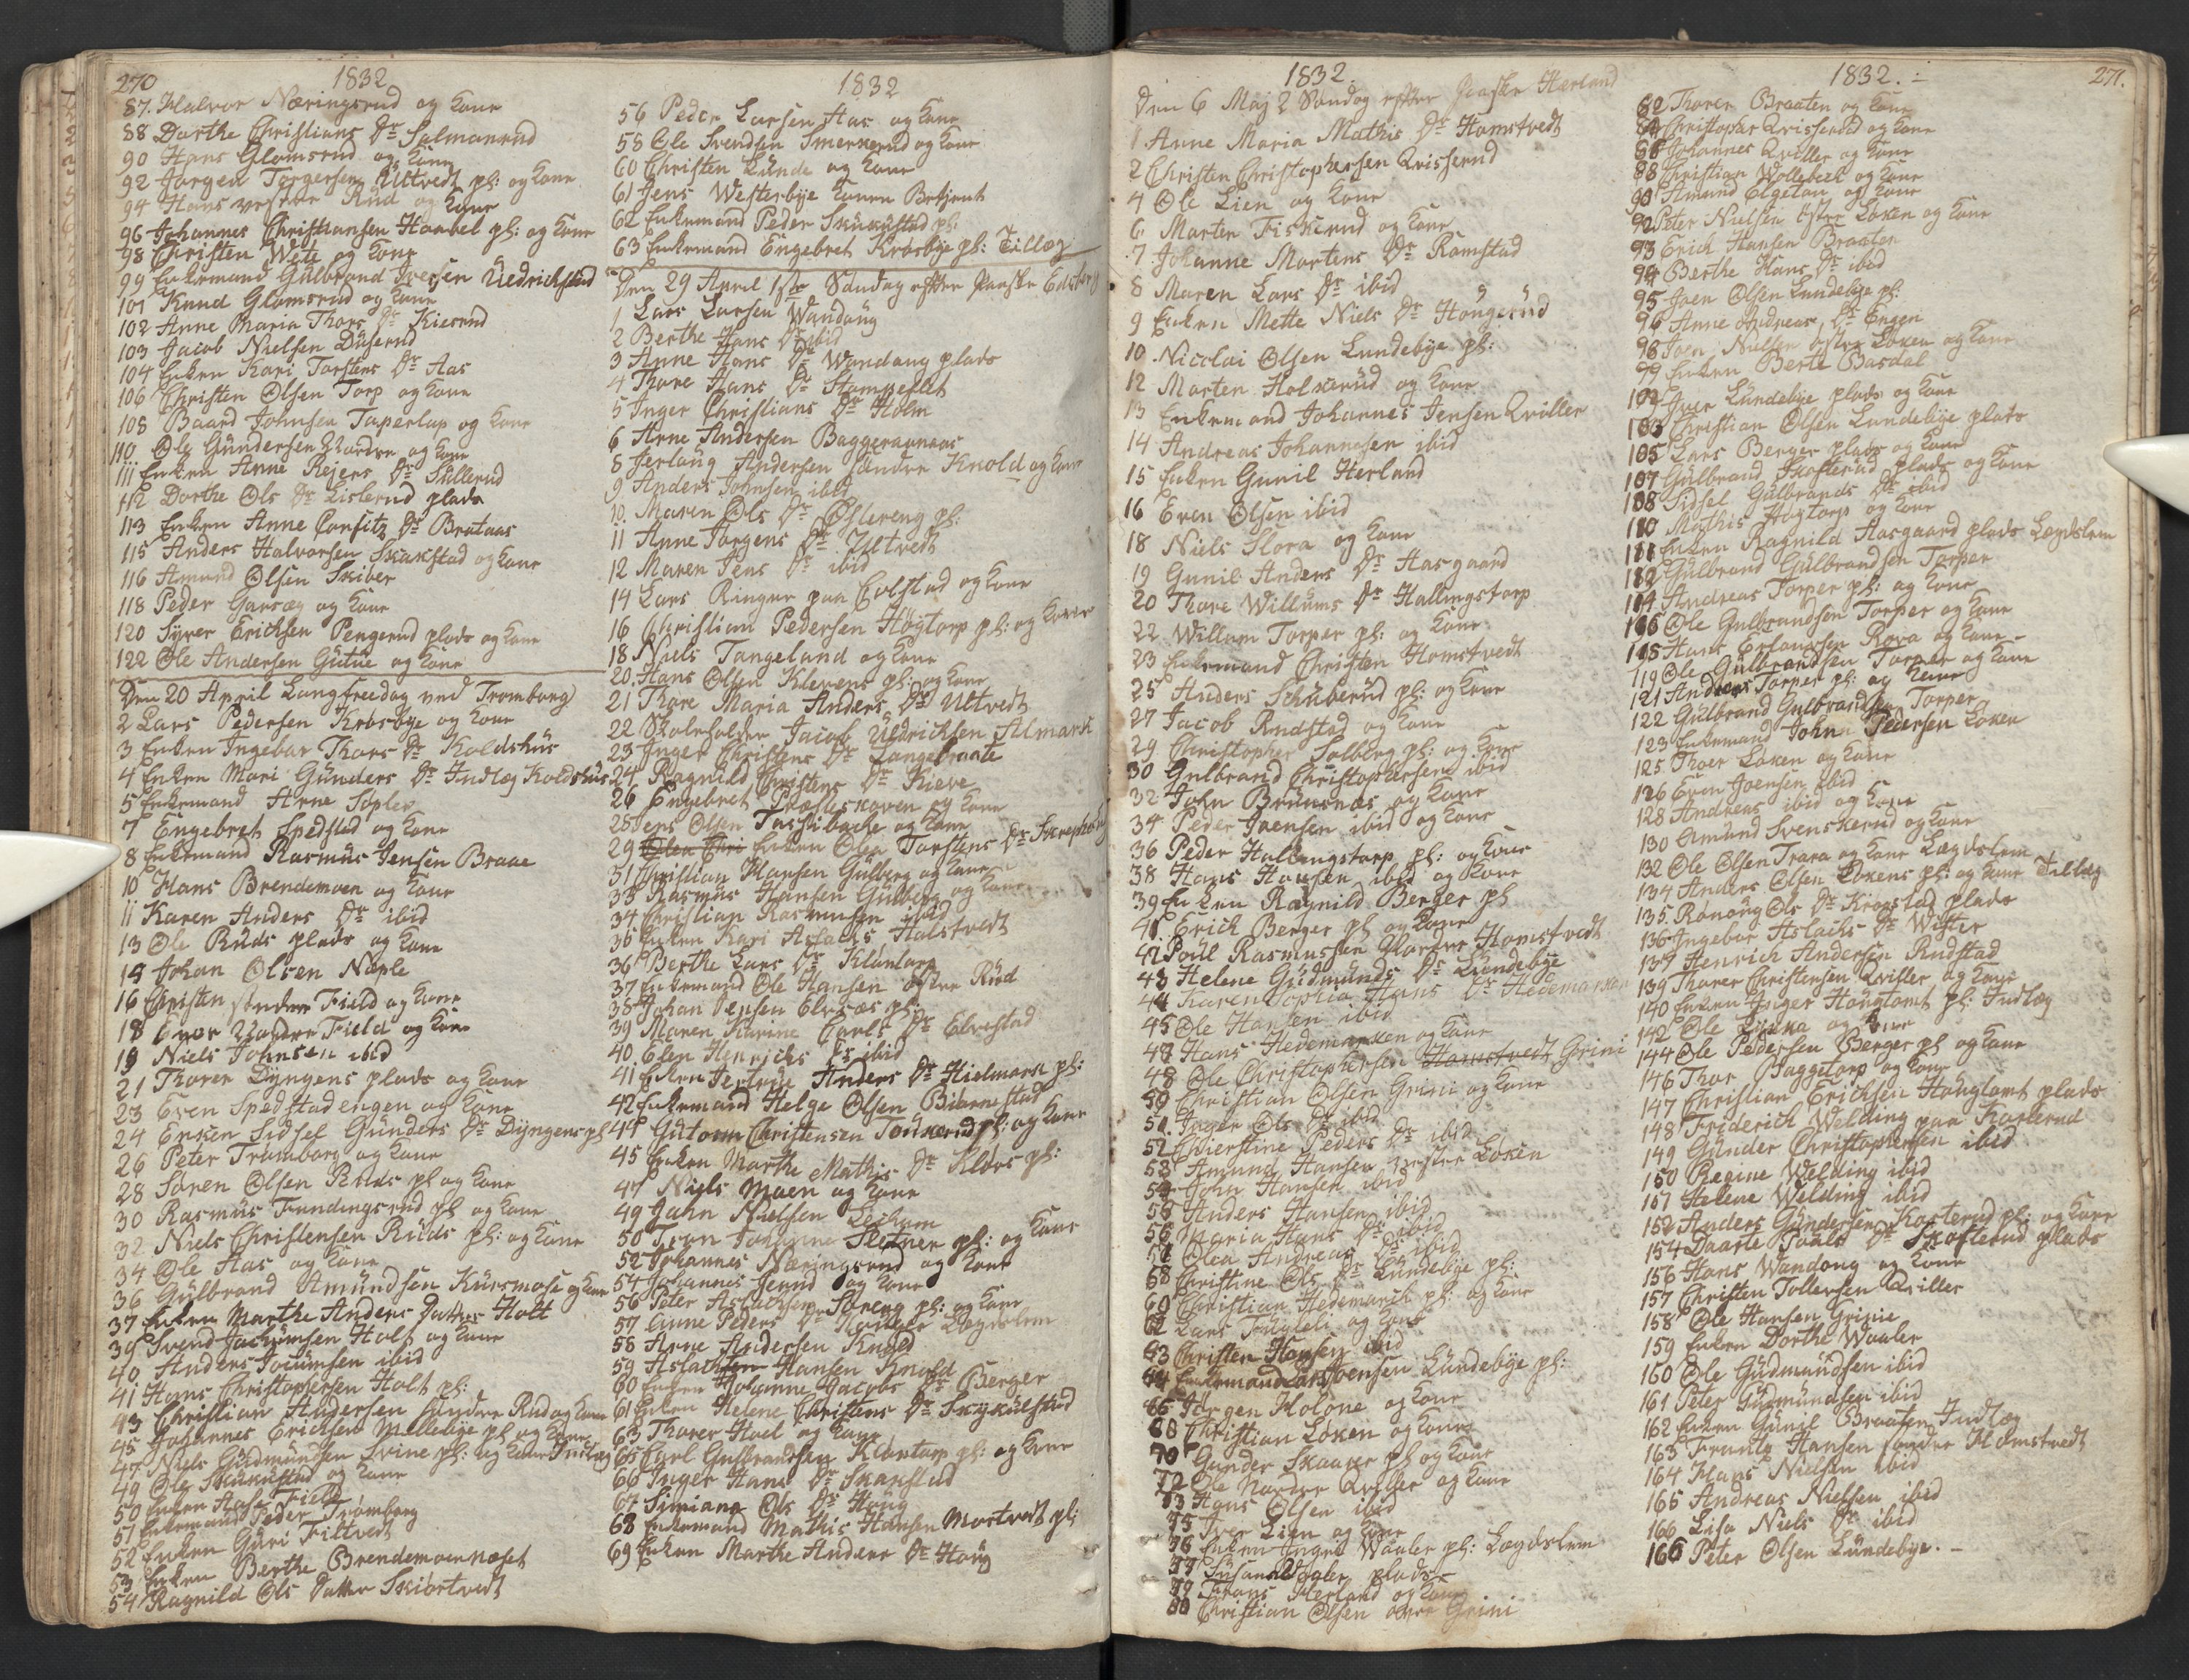 270
1832
87. Halvor Næringsrud og Kone
88 Dorthe Christians Dr Salmonrud
90 Hans Glomsrud og Kone
92 Jørgen Torgersen Ultvedt pl: og Kone
94 Hans vestre Rud og Kone
96 Johannes Christiansen Haabel pl: og Kone
98 Christen Wete og Kone
99 Enkemand Gülbrand Iversen Uedrichstad
101 Knud Glomsrud og Kone
102 Anne Maria Thors Dr Kiserud
103 Jacob Nielsen Düserud
104 Enken Kari Torstens Dr Aas
106 Christen Olsen Torp og Kone
108 Baard Johnsen Taperlap og Kone
110 Ole Gündersen Nordre og Kone
111 Enken Anne Rejers Dr Süllerud
112 Dorthe Ols Dr Lislerud plads
113 Enken Anne Confitz Dr Brataas
115 Anders Halvorsen Skakstad og Kone
116 Amund Olsen Skiber
118 Peder Garsæg og Kone
120 Syver Erichsen Pengerud plads og Kone
122 Ole Andersen Gütüe og Kone
Den 20 April Langfreedag ved Tromborg
2 Lars Pedersen Krosbye og Kone
3 Enken Ingebor Thors Dr Koldshüs
4 Enken Mari Günders Dr Indlæg Koldshüs
5 Enkemand Arne Sopler
7 Engebret Spedstad og Kone
8 Enkemand Rasmus Jensen Braae
10 Hans Brendemoen og Kone
11 Karen Anders Dr ibid
13 Ole Rüds plads og Kone
14 Johan Olsen Næple
16 Christen søndre Field og Kone
18 Iver Nordre Field og Kone
19 Niels Johnsen ibid
21 Thorer Dyngens plads og Kone
23 Even Spedstadengen og Kone
24 Enken Sidsel Günders Dr Dyngens pl
26 Peter Tramborg og Kone
28 Soren Olsen Rüds pl og Kone
30 Rasmus Fundingsrud pl og Kone
32 Niels Christensen Rüds pl: og Kone
34 Ole Aas og Kone
36 Gülbrand Amündsen Kürsmose og Kone
37 Enken Marthe Anders Datter Holt
39 Svend Jachümsen Holt og Kone
40 Anders Jocümsen ibid
41 Hans Christophersen Holt pl:
43 Christian Andersen søndre Rud og Kone
45 Johannes Erichsen Mellebye pl og Kone
47 Niels Güdmündsen Svine pl: og Kone Indlæg
49 Ole Skükustad og Kone
50 Enken Aase Field
51 Enkemand Peder Tromborg
52 Enken Güri Filtvedt
53 Enken Berthe Brendemoen næset
54 Ragnild Ols Datter Skiortvedt
1832
56 Peder Larsen Aas og Kone
58 Ole Svendsen Smerkerud og Kone
60 Christen Lünde og Kone
61 Jens Westerbye Konen Betjent
62 Enkemand Peder Skükustad pl:
63 Enkemand Engebret Krosbye pl: Tillæg
Den 29 April 1ste Søndag efter Paaske Edsberg
1 Lars Larsen Wandüng
2 Berthe Hans Dr ibid
3 Anne Hans Dr Wandang plads
4 Thore Hans Dr Stompeflet
5 Inger Christians Dr Holm
6 Arne Andersen Baggeraunaas
8 Jerlaüg Andersen søndre Knold og Kone
9 Anders Johnsen ibid
10. Maren Ols Dr Oslereng pl:
11 Anne Jorgens Dr Ultvedt
12 Maren Jens Dr ibid
14 Lars Ringer paa Eolstad og Kone
16 Christian Pedersen Høytorp pl: og Kone
18 Niels Tangeland og Kone
20. Hans Olsen Klevens pl: og Kone
21 Thore Maria Anders Dr Ultvedt
22 Skoleholder Jacob Üedrichsen Almark
23 Inger Christens Dr Langebraate
24 Ragnild Christens Dr Kieve
26 Engebret Præsteskoven og Kone
28 Jens Olsen Taffibache og Kone
29 Olea Chri Enken Olea Torstens Dr Skrepsbøl
31 Christian Hansen Gülberg og Kone
33 Rasmus Hansen Gülberg og Kone
34 Christian Rasmussen ibid
35 Enken Kari Aslachs Halstvedt
36 Berthe Lars Dr Klüntorp
37 Enkemand Ole Hansen østre Rüd
38 Johan Jensen Elvesæs pl:
39 Maren Karine Carls Dr Elvestad
40. Elen Henrichs Dr ibid
41 Enken Jertrüe Anders Dr Hielmark pl:
42 Enkemand Helge Olsen Biørnestad
44 Gutorm Christensen Tonkerüd pl: og Kone
45 Enken Marthe Mathis Dr Kløes pl:
47 Niels Moen og Kone
49 Jahn Nielsen Leikum
50 Tron Johanne Sletner pl: og Kone
52 Johannes Næringsrud og Kone
54 Johannes Jerud og Kone
56 Peter Aslachsen Soreng pl: og Kone
57 Anne Peders Dr Lægdslem
58 Arne Andersen Knold
59 Aslachsen Hansen Knold
60 Enken Johanne Jacobs Dr Berger
61 Enken Helene Christens Dr Skykülstad
63 Thorer Hoel og Kone
65 Carl Gulbrandsen Klontorp pl: og Kone
66 Inger Hans Dr Skakstad
67 Simiana Ols Dr Høüg
68 Enkemand Mathis Hansen Mortvedt pl:
69 Enken Marthe Anders Dr Høüg
1832.
Den 6 Maj 2 Søndag efter Paaske Herland
1 Anne Maria Mathis Dr Homstvedt
2 Christen Christophersen Qvisserud
4 Ole Lien og Kone
6 Morten Fiskerud og Kone
7 Johanne Mortens Dr Ramstad
8 Maren Lars Dr ibid
9 Enken Mette Niels Dr Höngerüd
10 Nicolai Olsen Lundebye pl:
12 Morten Holkerüd og Kone
13 Enkemand Johannes Jensen Qviller
14 Andreas Johannesen ibid
15 Enken Gunil Herland
16 Even Olsen ibid
18 Niels Slora og Kone
19 Gunil Anders Dr Aasgaard
20 Thore Willüms Dr Hallingstorp
22 Willum Torper pl: og Kone
23 Enkemand Christen Homstvedt
25 Anders Schüberüd pl: og Kone
27 Jacob Rudstad og Kone
29 Christopher Solberg pl: og Kone
30 Gulbrand Christophersen ibid
32 John Brünsnæs og Kone
34 Peder Joensen ibid og Kone
36 Peder Hallingstorp pl: og Kone
38 Hans Hansen ibid og Kone
39 Enken Ragnild Berger pl
41. Erich Berger pl og Kone
42 Poül Rasmussen Nordre Homstvedt
43 Helene Güdmünds Dr Lündebye
44 Karen Sophia Hans Dr Hedemarken
45 Ole Hansen ibid
47 Hans Hedemarken og Kone
48 Ole Christophersen Homstvedt Grini
50 Christian Olsen Grini og Kone
51. Inger Ols Dr ibid
52 Chierstine Peders Dr ibid
53 Amund Hansen vestre Løken
54 John Hansen ibid
55 Anders Hansen ibid
56 Maria Hans Dr ibid
57 Olea Andreas Dr ibid
58 Christine Ols Dr Lündebye pl:
60 Christian Hedemarck pl: og Kone
62 Lars og Kone
63 Christen Hansen ibid
64 Enkemand Lars Joensen Lündebye pl:
66 Jørgen Kolone og Kone
68 Christian Løken og Kone
70 Gunder Skaarer pl og Kone
72 Ole Nordre Qviller og Kone
73 Hans Olsen ibid
75 Iver Lien og Kone
76 Enken Inger Waaler pl: Lægdslem
77 Susanna Waaler plads
79 Frans Herland og Kone
80 Christian Olsen øvre Grini
1832. :
271.
82 Thorer Braaten og Kone
84 Christopher Qvisserud og Kone
86 Johannes Qviller og Kone
88 Christian Wollebech og Kone
90 Amund Elgetun og Kone
92 Peter Nielsen østre Løken og Kone
93 Erich Hansen Braaten
94 Berthe Hans Dr ibid
95 Joen Olsen Lundebye pl:
96 Anne Andreas Dr Engen
98 Joen Nielsen østre Løken og Kone
99 Enken Berte Basdal
102 Iver Lündebye plads og Kone
103 Christian Olsen Lundebye plads
105 Lars Berger plads og Kone
107 Gülbrand Skofterüd plads og Kone
108 Sidsel Gülbrands Dr ibid
110 Mathis Høytorp og Kone
111 Enken Ragnild Aasgaard plads Lægdslem
112 Gülbrand Gülbrandsen Torper
114 Andreas Torper pl: og Kone
116 Ole Gulbrandsen Torper og Kone
118 Hans Erlandsen Rova og Kone
119 Ole Gülbrandsen Torper og Kone
121 Anders Torper pl: og Kone
122 Gülbrand Gulbrandsen Torper
123 Enkemand Johan Pedersen Løken
125 Thoer Løken og Kone
126 Even Joensen ibid
128 Andreas ibid og Kone
130 Amund Svenskerud og Kone
132 Ole Olsen Trara og Kone Lægdslem
134 Anders Olsen Løkens pl: og Kone Tillæg
135. Rønoüg Ols Dr Krogstad plads
136 Ingebor Aslachs Dr Wister
137 Henrich Andersen Rudstad
139 Thorer Christensen Qviller og Kone
140 Enken Inger Høuglomt pl: Indlæg
142 Ole Lykka og Kone
144 Ole Pedersen Berger pl og Kone
146 Thor Baggetorp og Kone
147 Christian Erichsen Höuglomt plads
148 Friderich Welding paa Kosterud
149 Günder Christophersen ibid
150 Regine Welding ibid
151 Helene Welding ibid
152 Anders Gündersen Kosterud pl: og Kone
154 Daarte Poüls Dr Skofterud plads
156 Hans Wandong og Kone
157 Christen Tollersen Qviller
158 Ole Hansen Grinie
159 Enken Dorthe Waaler
160 Ole Güdmündsen ibid
161 Peter Güdmündsen ibid
162 Enken Günil Braaten Indlæg
163 Frantz Hansen søndre Homstvedt
164 Hans Nielsen ibid
165 Andreas Nielsen ibid
166 Lisa Niels Dr ibid
166 Peter Olsen Lündebye. –